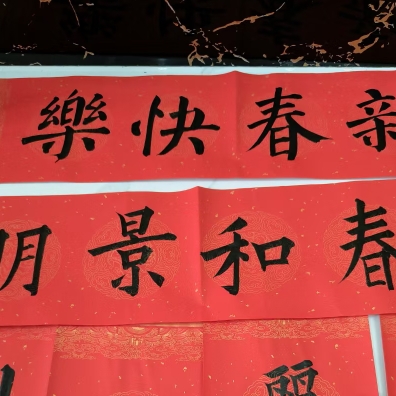 新春快樂
春和景明